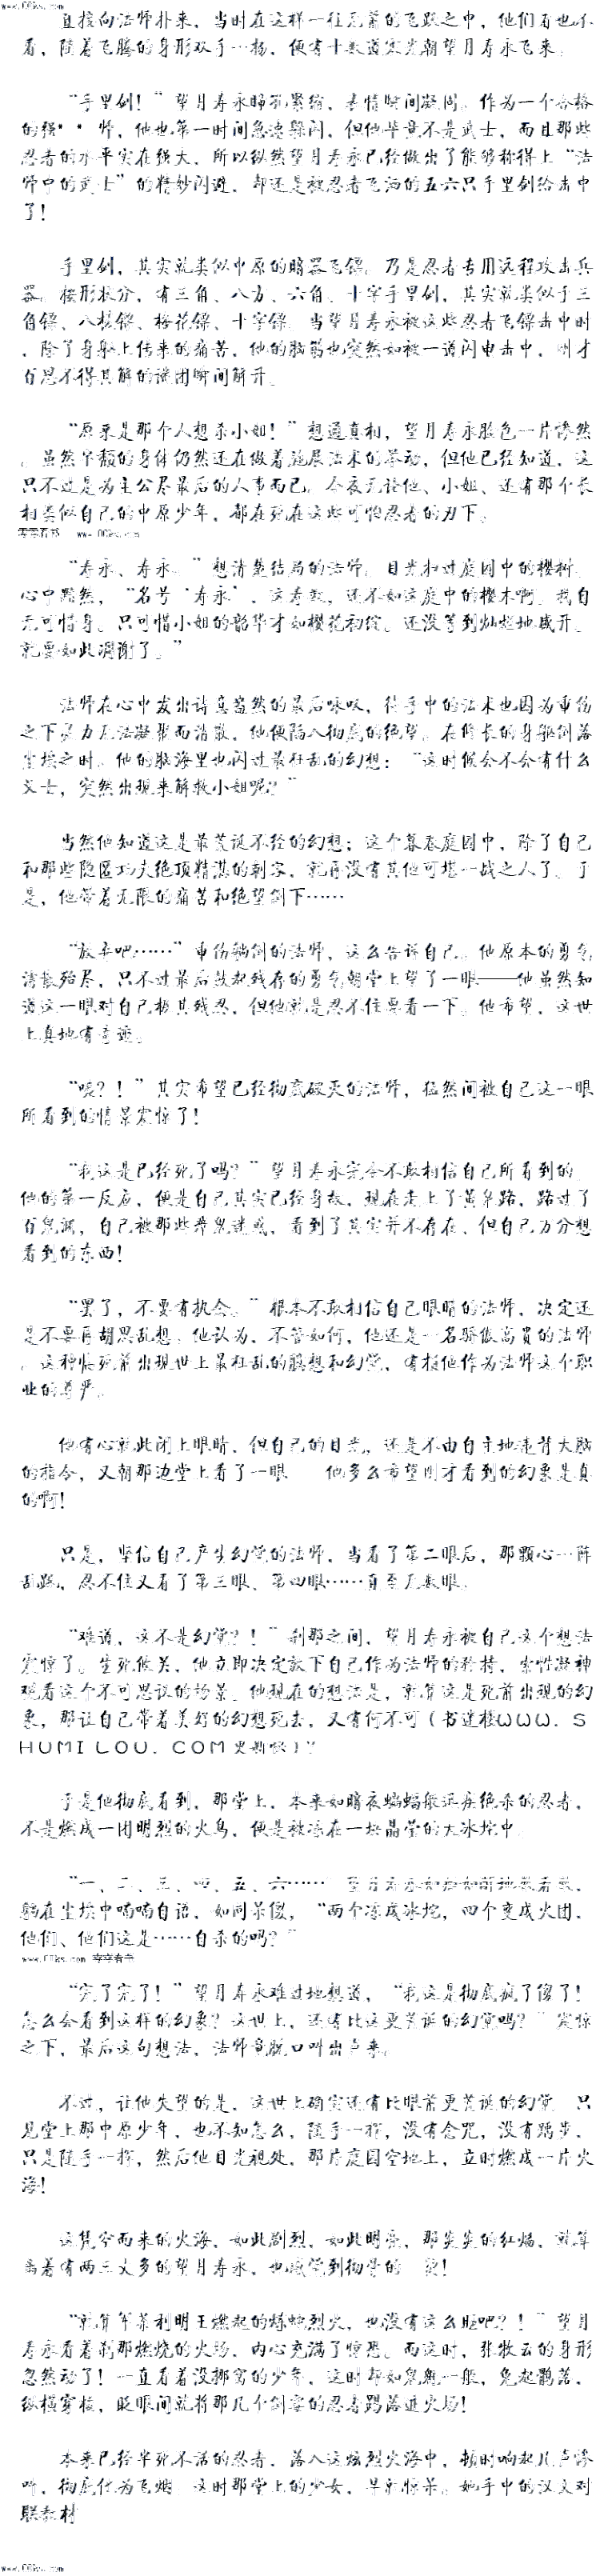 www.00ks.com
直接向法师扑来，当时在这样一往无前的飞跃之中，他们看也不
看，随着飞腾的身形双手一扬，便有十数道寒光朝望月寿永飞来。
“手里剑！”望月寿永瞳孔紧缩，表情瞬间凝固。作为一个合格
的强**师，他也第一时间急速躲闪，但他毕竟不是武士，而且那些
忍者的水平实在强大，所以纵然望月寿永已经做出了能够称得上“法
师中的武士”的精妙闪避，却还是被忍者飞洒的五六只手里剑给击中
了！
手里剑，其实就类似中原的暗器飞镖。乃是忍者专用远程攻击兵
器。按形状分，有三角、八方、六角、十字手里剑，其实就类似于三
角镖、八棱镖、梅花镖、十字镖。当望月寿永被这些忍者飞镖击中时
，除了身躯上传来的痛苦，他的脑筋也突然如被一道闪电击中，刚才
百思不得其解的谜团瞬间解开。
“原来是那个人想杀小姐！”想通真相，望月寿永脸色一片惨然
。虽然早颓的身体仍然还在做着施展法术的举动，但他已经知道，这
只不过是为主公尽最后的人事而已。今夜无论他、小姐、还有那个长
相类似自己的中原少年，都在死在这些可怕忍者的刃下。
零零看书 www.00ks.com
“寿永、寿永。”想清楚结局的法师。目光扫过庭园中的樱树，
心中黯然，“名号‘寿永’、这寿数，还不如这庭中的樱木啊。我自
无可惜身。只可惜小姐的韶华才如樱花初绽。还没等到灿烂地盛开，
就要如此凋谢了。”
法师在心中发出诗意盎然的最后咏叹，待手中的法术也因为重伤
之下灵力无法凝聚而消散，他便陷入彻底的绝望。在修长的身躯倒落
尘埃之时。他的脑海里也闪过最狂乱的幻想：“这时候会不会有什么
义士，突然出现来解救小姐呢？”
当然他知道这是最荒诞不经的幻想；这个暮春庭园中，除了自己
和那些隐匿功夫绝顶精湛的刺客，就再没有其他可堪一战之人了。于
是，他带着无限的痛苦和绝望倒下……
“放弃吧……”重伤躺倒的法师，这么告诉自己。他原本的勇气
消散殆尽，只不过最后鼓起残存的勇气朝堂上望了一眼——他虽然知
道这一眼对自己极其残忍，但他就是忍不住要看一下。他希望，这世
上真地有奇迹。
“咦？！”其实希望已经彻底破灭的法师，猛然间被自己这一眼
所看到的情景震惊了！
“我这是已经死了吗？”望月寿永完全不敢相信自己所看到的。
他的第一反应，便是自己其实已经身故，现在走上了黄泉路，路过了
百鬼洞，自己被那些弄鬼迷惑，看到了其实并不存在、但自己万分想
看到的东西！
“罢了，不要有执念。”根本不敢相信自己眼睛的法师，决定还
是不要再胡思乱想。他认为，不管如何，他还是一名骄傲高贵的法师
。这种临死前出现世上最狂乱的臆想和幻觉，有损他作为法师这个职
业的尊严。
他有心就此闭上眼睛，但自己的目光，还是不由自主地违背大脑
的指令，又朝那边堂上看了一眼 他多么希望刚才看到的幻象是真
的啊！
只是，坚信自己产生幻觉的法师，当看了第二眼后，那颗心一阵
乱跳，忍不住又看了第三眼、第四眼……直至无数眼。
“难道，这不是幻觉？！”刹那之间，望月寿永被自己这个想法
震惊了。生死攸关，他立即决定放下自己作为法师的矜持，索性凝神
观看这个不可思议的场景。他现在的想法是，就算这是死前出现的幻
象，那让自己带着美好的幻想死去，又有何不可（书迷楼WWW．S
HUMILOU．COM更新快）？
于是他彻底看到，那堂上，本来如暗夜蝙蝠般迅疾绝杀的忍者，
不是燃成一团明烈的火鸟，便是被冻在一块晶莹的大冰坨中。
“一、二、三、四、五、六……”望月寿永如痴如醉地数着数，
躺在尘埃中喃喃自语，如同茶傻，“两个冻成冰坨，四个变成火团，
他们、他们这是……自杀的吗？”
www.00ks.com 零零看书
“完了完了！”望月寿永难过地想道，“我这是彻底疯了傻了！
怎么会看到这样的幻象？这世上，还有比这更荒诞的幻觉吗？”震惊
之下，最后这句想法，法师竟脱口叫出声来。
不过，让他失望的是，这世上确实还有比眼前更荒诞的幻觉 只
见堂上那中原少年，也不知怎么，随手一挥，没有念咒，没有踽步，
只是随手一挥，然后他目光视处，那片庭园空地上，立时燃成一片火
海！
这凭空而来的火海，如此剧烈，如此明亮，那炎炎的红焰，就算
离着有两三丈多的望月寿永，也感觉到彻骨的 烫！
“就算军荼利明王燃起的炼蛇烈火，也没有这么旺吧？！”望月
寿永看着刹那燃烧的火场，内心充满了惊恐。而这时，张牧云的身形
忽然动了！一直看着没挪窝的少年，这时却如鬼魅一般，兔起鹘落，
纵横穿梭，眨眼间就将那几个刺客的忍者踢落进火场！
本来已经半死不活的忍者，落入这炫烈火海中，顿时响起几声惨
叫，彻底化为飞烟 这时那堂上的少女，早就惊呆。她手中的汉文对
联教材
www.00ks.com